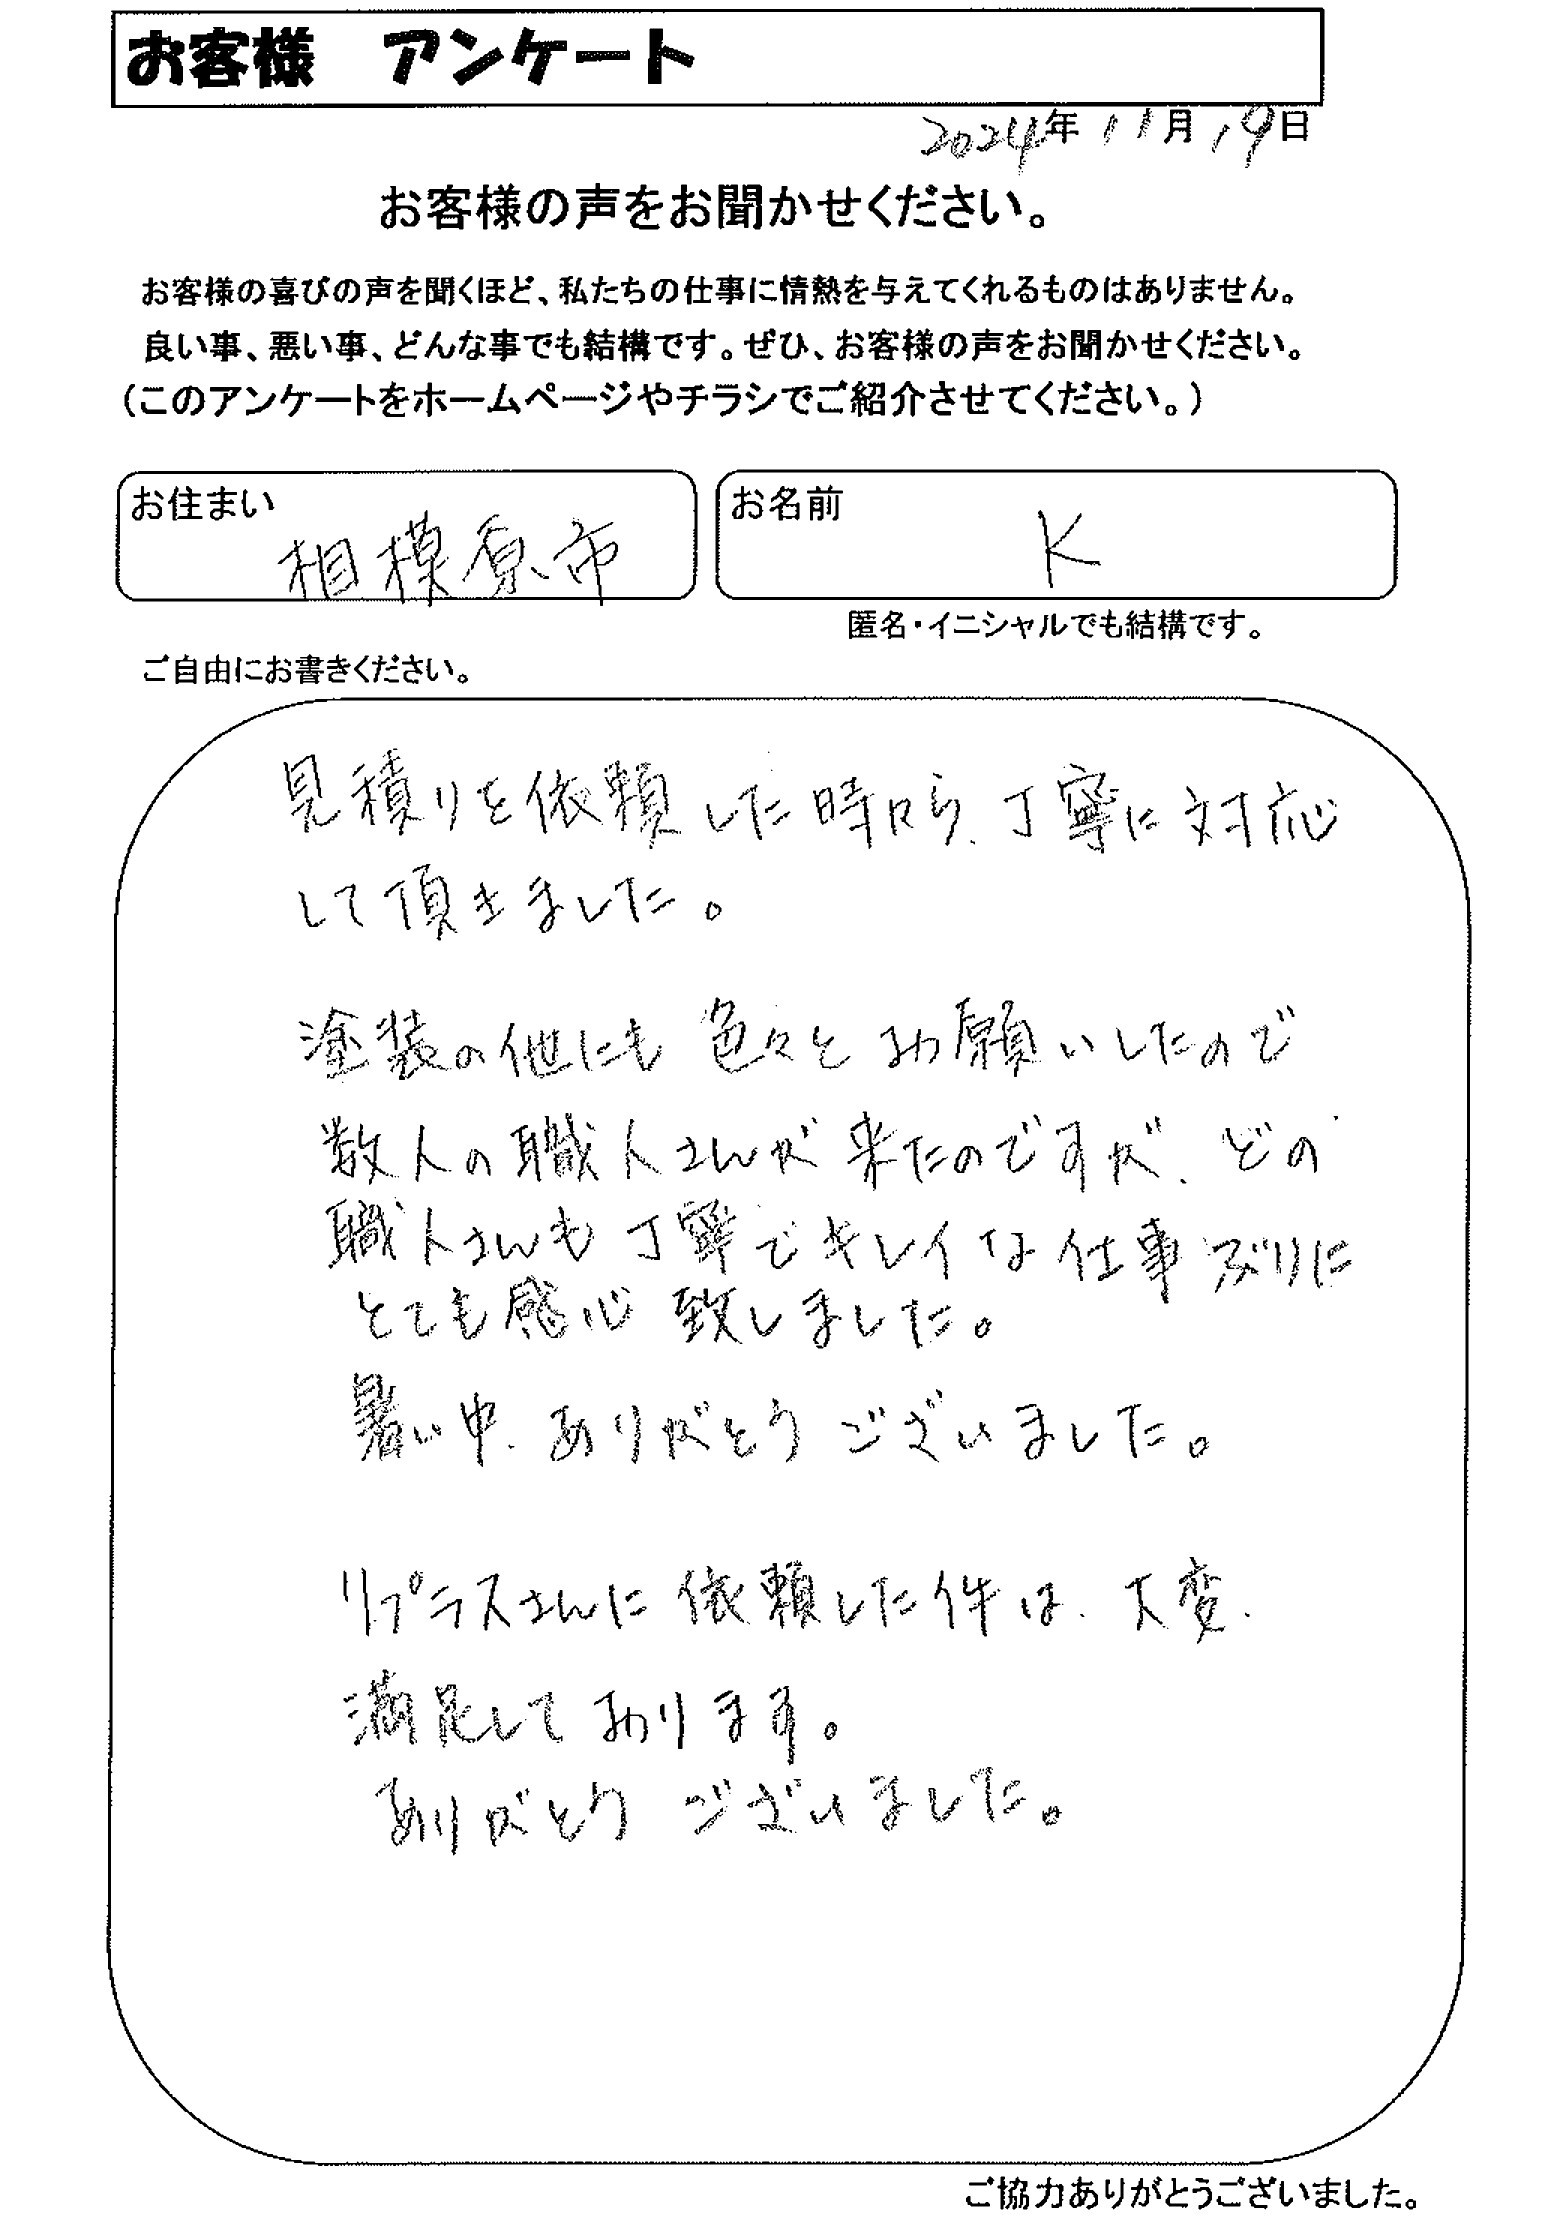 お客様　アンケート
2024年11月19日
お客様の声をお聞かせください。
お客様の喜びの声を聞くほど、私たちの仕事に情熱を与えてくれるものはありません。
良い事、悪い事、どんな事でも結構です。ぜひ、お客様の声をお聞かせください。
（このアンケートをホームページやチラシでご紹介させてください。）
お住まい　相模原市
お名前　K
匿名・イニシャルでも結構です。
ご自由にお書きください。
見積りを依頼した時から、丁寧に対応
して頂きました。
塗装の他にも色々とお願いしたので
数人の職人さんが来たのですが、どの
職人さんも丁寧でキレイな仕事ぶりに
とても感心致しました。
暑い中、ありがとうございました。
リプラスさんに依頼した件は、大変
満足しております。
ありがとうございました。
ご協力ありがとうございました。